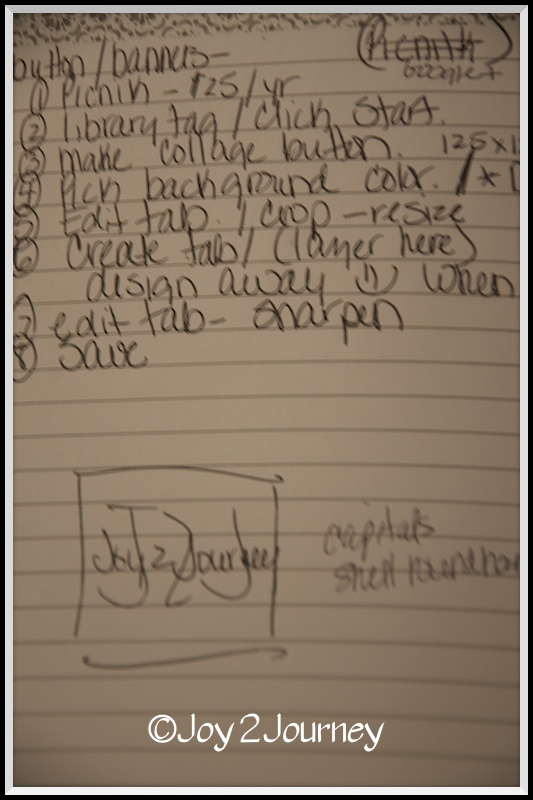 (Picnik)
button/banners-
① Picnik - $25/yr
② library tag / click start.
③ make collage button. 125x1
④ Pick background color. / * 
⑤ Edit tab. / crop - resize
⑥ Create tab / (layer here)
design away :) when
⑦ edit tab - sharpen
⑧ Save
Joy 2 Journey
capitals
shell
©Joy2Journey